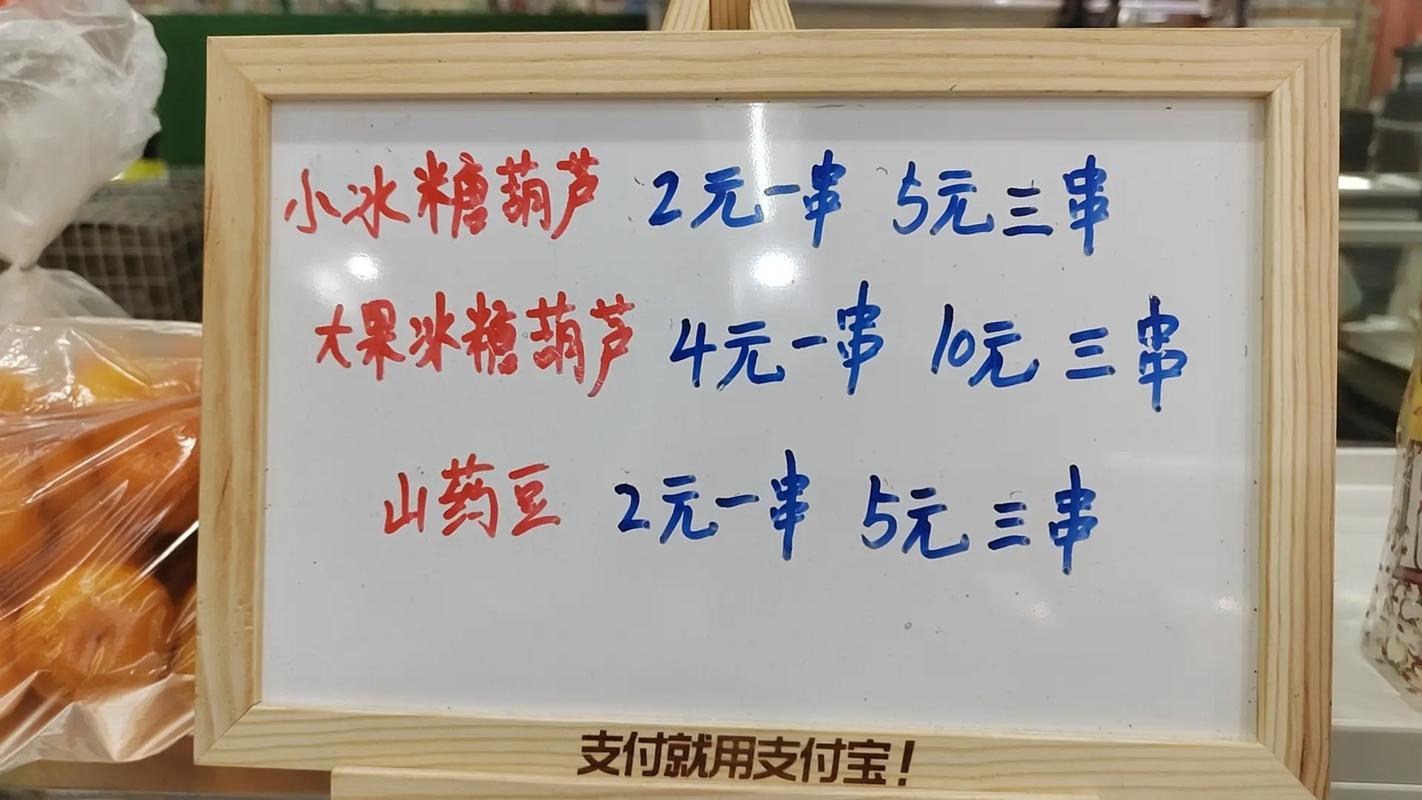 小冰糖葫芦 2元一串 5元三串
大果冰糖葫芦 4元一串 10元三串
山药豆 2元一串 5元三串
支付就用支付宝!